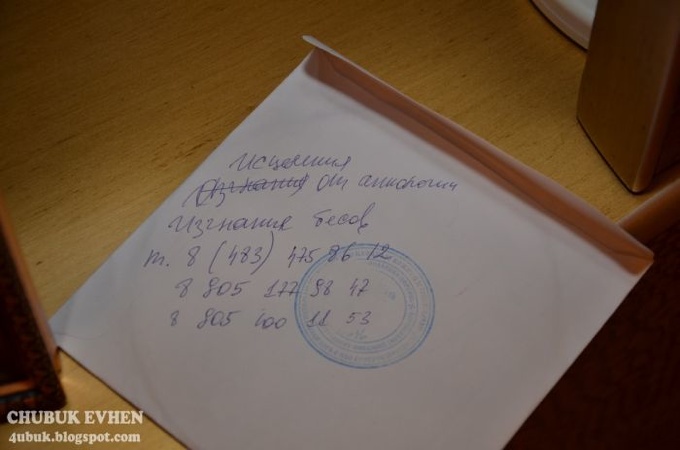 Исцеления
Изгнания от онкологии
Изгнание бесов
т. 8 (483) 475 86 12
8 905 177 98 47
8 905 100 11 53
CHUBUK EVHEN
4ubuk.blogspot.com